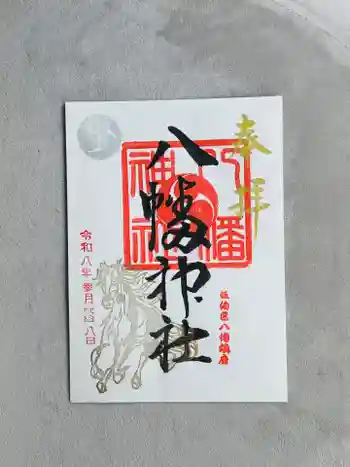 奉拝
八幡神社
八幡
神社
佐伯区八幡鎮座
令和八年参月廿八日